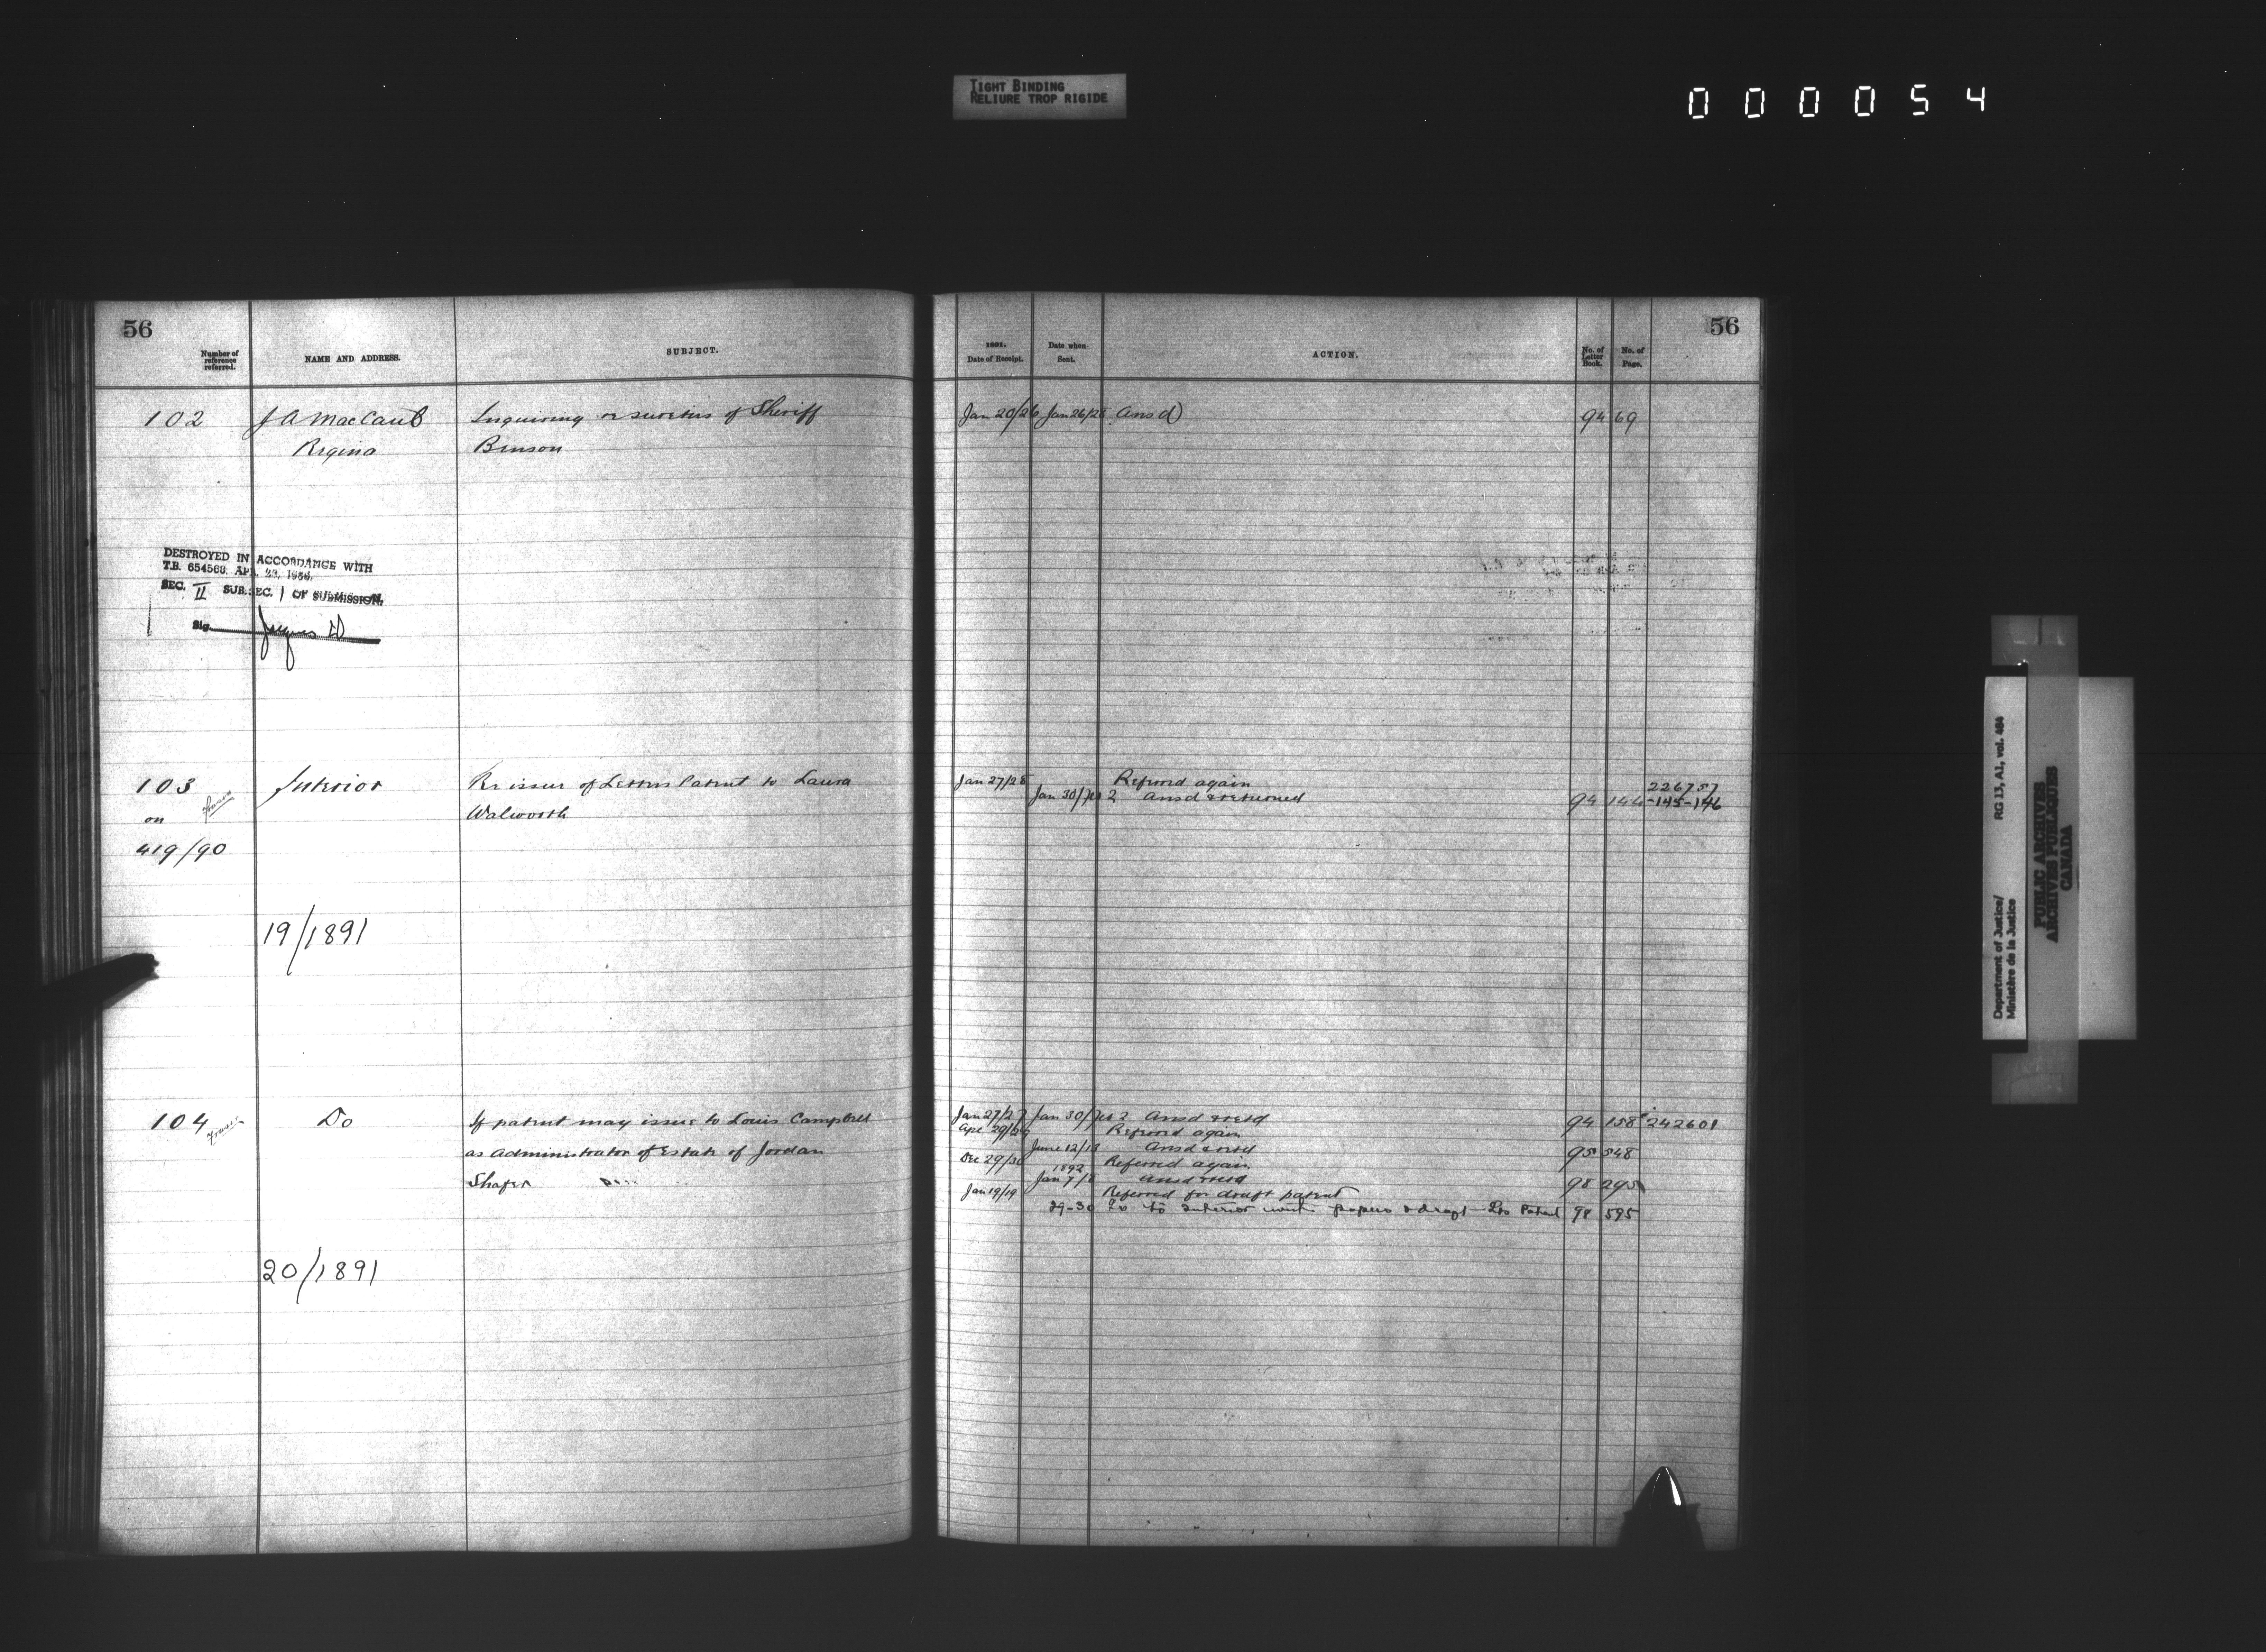 TIGHT BINDING
RELIURE TROP RIGIDE
000054
56
Number of reference referred.
NAME AND ADDRESS.
SUBJECT.
102
J A MacCaul
Inquiring re sureties of Sheriff
Regina
Benson
DESTROYED IN ACCORDANCE WITH
T.B. 654568, APR. 23, 1956,
SEC. II SUB. SEC. 1 OF SUBMISSION.
Sig.
103
Interior
Re issue of Letters Patent to Laura
on
Walworth
419/90
19/1891
104
Do
If patent may issue to Louis Campbell
as Administrator of Estate of Jordan
Shafer
20/1891
56
1891.
Date of Receipt.
Date when Sent.
ACTION.
No. of Letter Book.
No. of Page.
Jan 20/26 Jan 26/28 Ansd) 94 69
Jan 27/28 Referred again 226757
Jan 30/Feb 2 Ansd & returned 94 144-145-146
Jan 27/27 Jan 30/Feb 2 Ansd & retd 94 158 242601
Apl 29/29 Referred again
June 12/13 Ansd & retd 95 548
Dec 29/30 Referred again
1892
Jan 7/8 Ansd & retd 98 295
Jan 19/19 Referred for draft patent
29-30 Lr to Interior with papers & draft Lrs Patent 98 595
Department of Justice/
Ministère de la Justice
RG 13, A1, vol. 484
PUBLIC ARCHIVES
ARCHIVES PUBLIQUES
CANADA